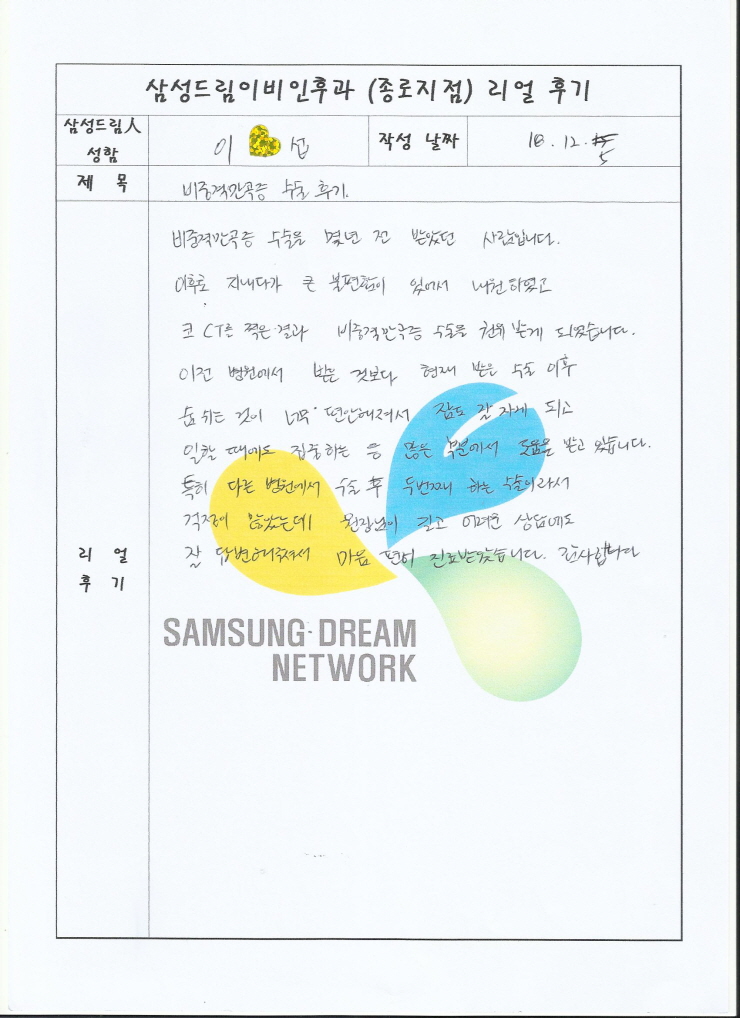 삼성드림이비인후과 (종로지점) 리얼 후기
삼성드림人 성함
이 섭
작성 날짜
18. 12. 5
제 목
비중격만곡증 수술 후기.
리 얼 후 기
비중격만곡증 수술을 몇년 전 받았던 사람입니다.
이후로 지내다가 큰 불편함이 있어서 내원하였고
코 CT를 찍은 결과 비중격만곡증 수술을 권유 받게 되었습니다.
이전 병원에서 받은 것보다 현재 받은 수술 이후
숨 쉬는 것이 너무 편안해져서 잠도 잘 자게 되고
일할 때에도 집중하는 등 많은 부분에서 도움을 받고 있습니다.
특히 다른 병원에서 수술 후 두번째 하는 수술이라서
걱정이 많았는데 원장님이 길고 어려운 상담에도
잘 답변해주셔서 마음 편히 진료받았습니다. 감사합니다
SAMSUNG DREAM
NETWORK